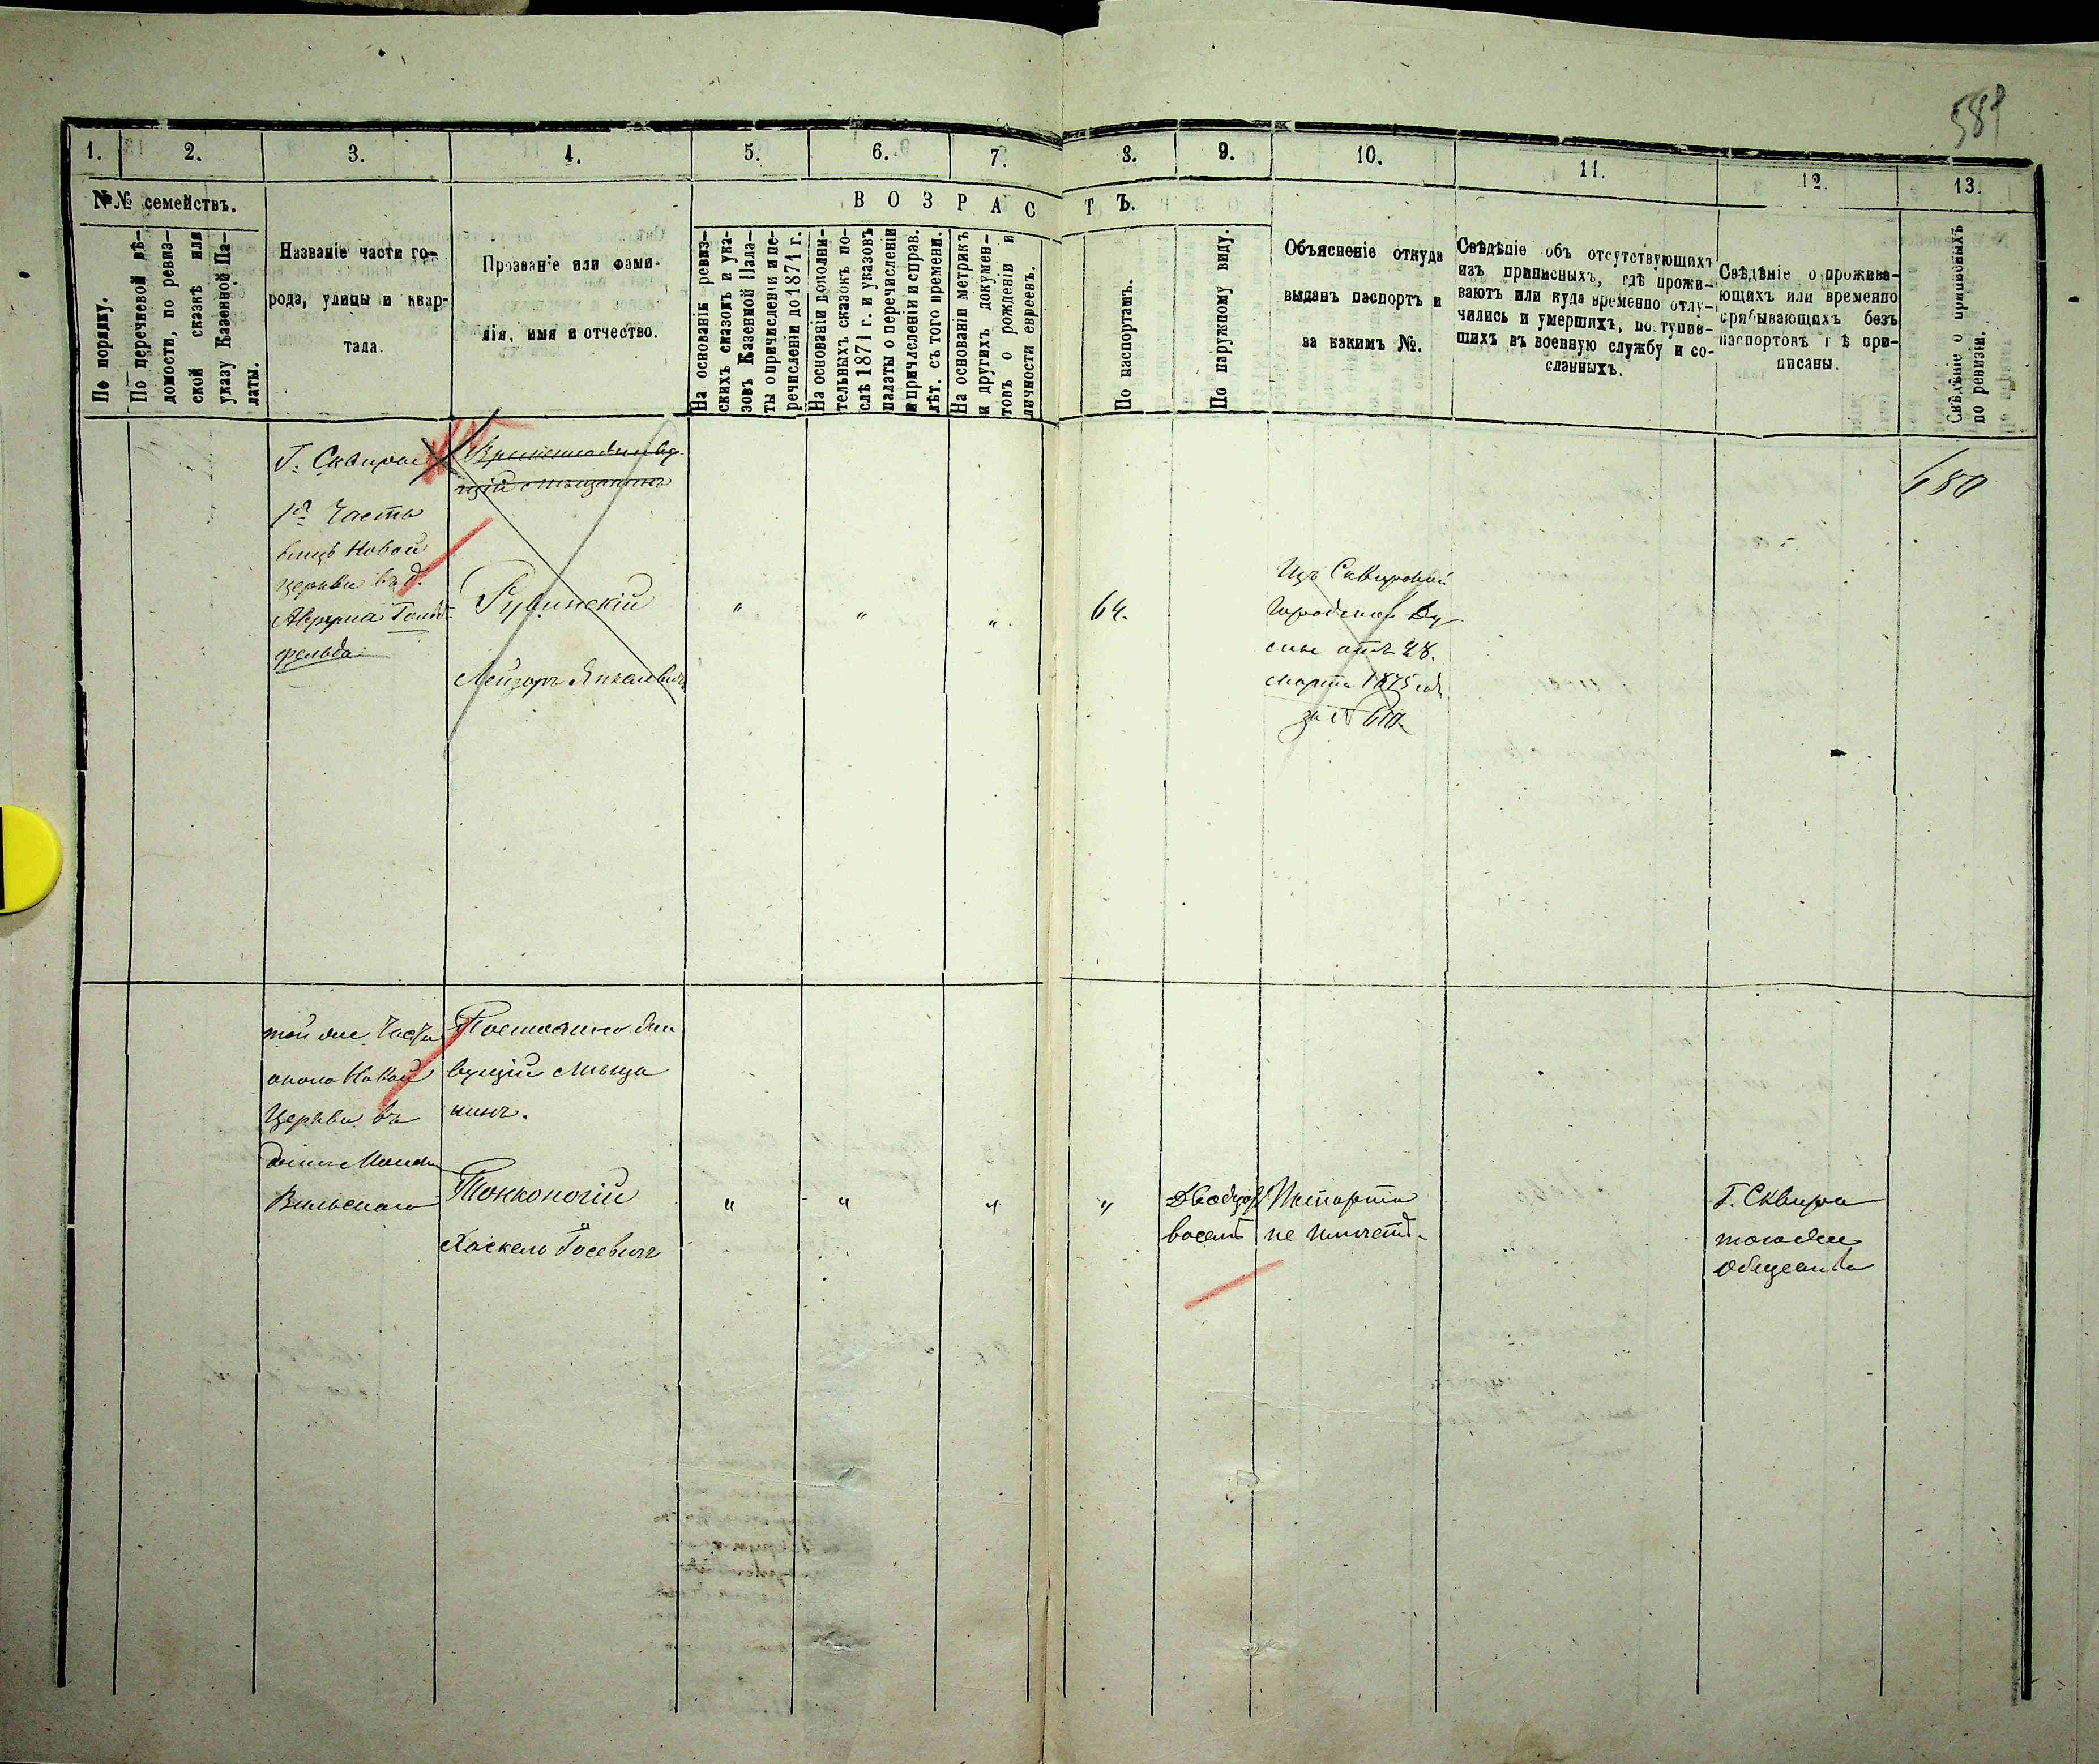 589
1. 2. 3. 4. 5. 6. 7. 8. 9. 10. 11. 12. 13.
№№ семействъ.
ВОЗРАСТЪ.
По порядку.
По перечневой вѣ-
домости, по ревиз-
ской сказкѣ или
указу Казенной Па-
латы.
Названіе части го-
рода, улицы и квар-
тала.
Прозваніе или фами-
лія, имя и отчество.
На основаніи ревиз-
скихъ сказокъ и ука-
зовъ Казенной Пала-
ты о причисленіи и пе-
речисленіи до 1871 г.
На основаніи дополни-
тельныхъ сказокъ по-
слѣ 1871 г. и указовъ
палаты о перечисленіи
и причисленіи и справ.
лѣт. съ того времени.
На основаніи метрикъ
и другихъ докумен-
товъ о рожденіи и
личности евреевъ.
По паспортамъ.
По наружному виду.
Объясненіе откуда
выданъ паспортъ и
за какимъ №.
Свѣдѣніе объ отсутствующихъ
изъ приписныхъ, гдѣ прожи-
ваютъ или куда временно отлу-
чились и умершихъ, поступив-
шихъ въ военную службу и со-
сланныхъ.
Свѣдѣніе о прожива-
ющихъ или временно
пребывающихъ безъ
паспортовъ гдѣ при-
писаны.
Свѣдѣніе о приписныхъ
по ревизіи.
Г. Сквира
1я Часть
Новой
церкви въ д.
Аврума Гольд-
фельда
мѣщанинъ
Рувинскій
Лейзоръ Янкелевичъ
" " "
64.
Изъ Сквирской
Городской Ду-
мы отъ 28.
марта 1875 года
за № 610.
680
той же Части
около Новой
Церкви въ
домѣ
Вильскаго
Постоянно жи
вущій мѣща
нинъ.
Тонконогій
Хаскель Іосевичъ
" " " "
Двадцать
восемь
Паспорта
не имѣетъ.
Г. Сквира
того же
Общества